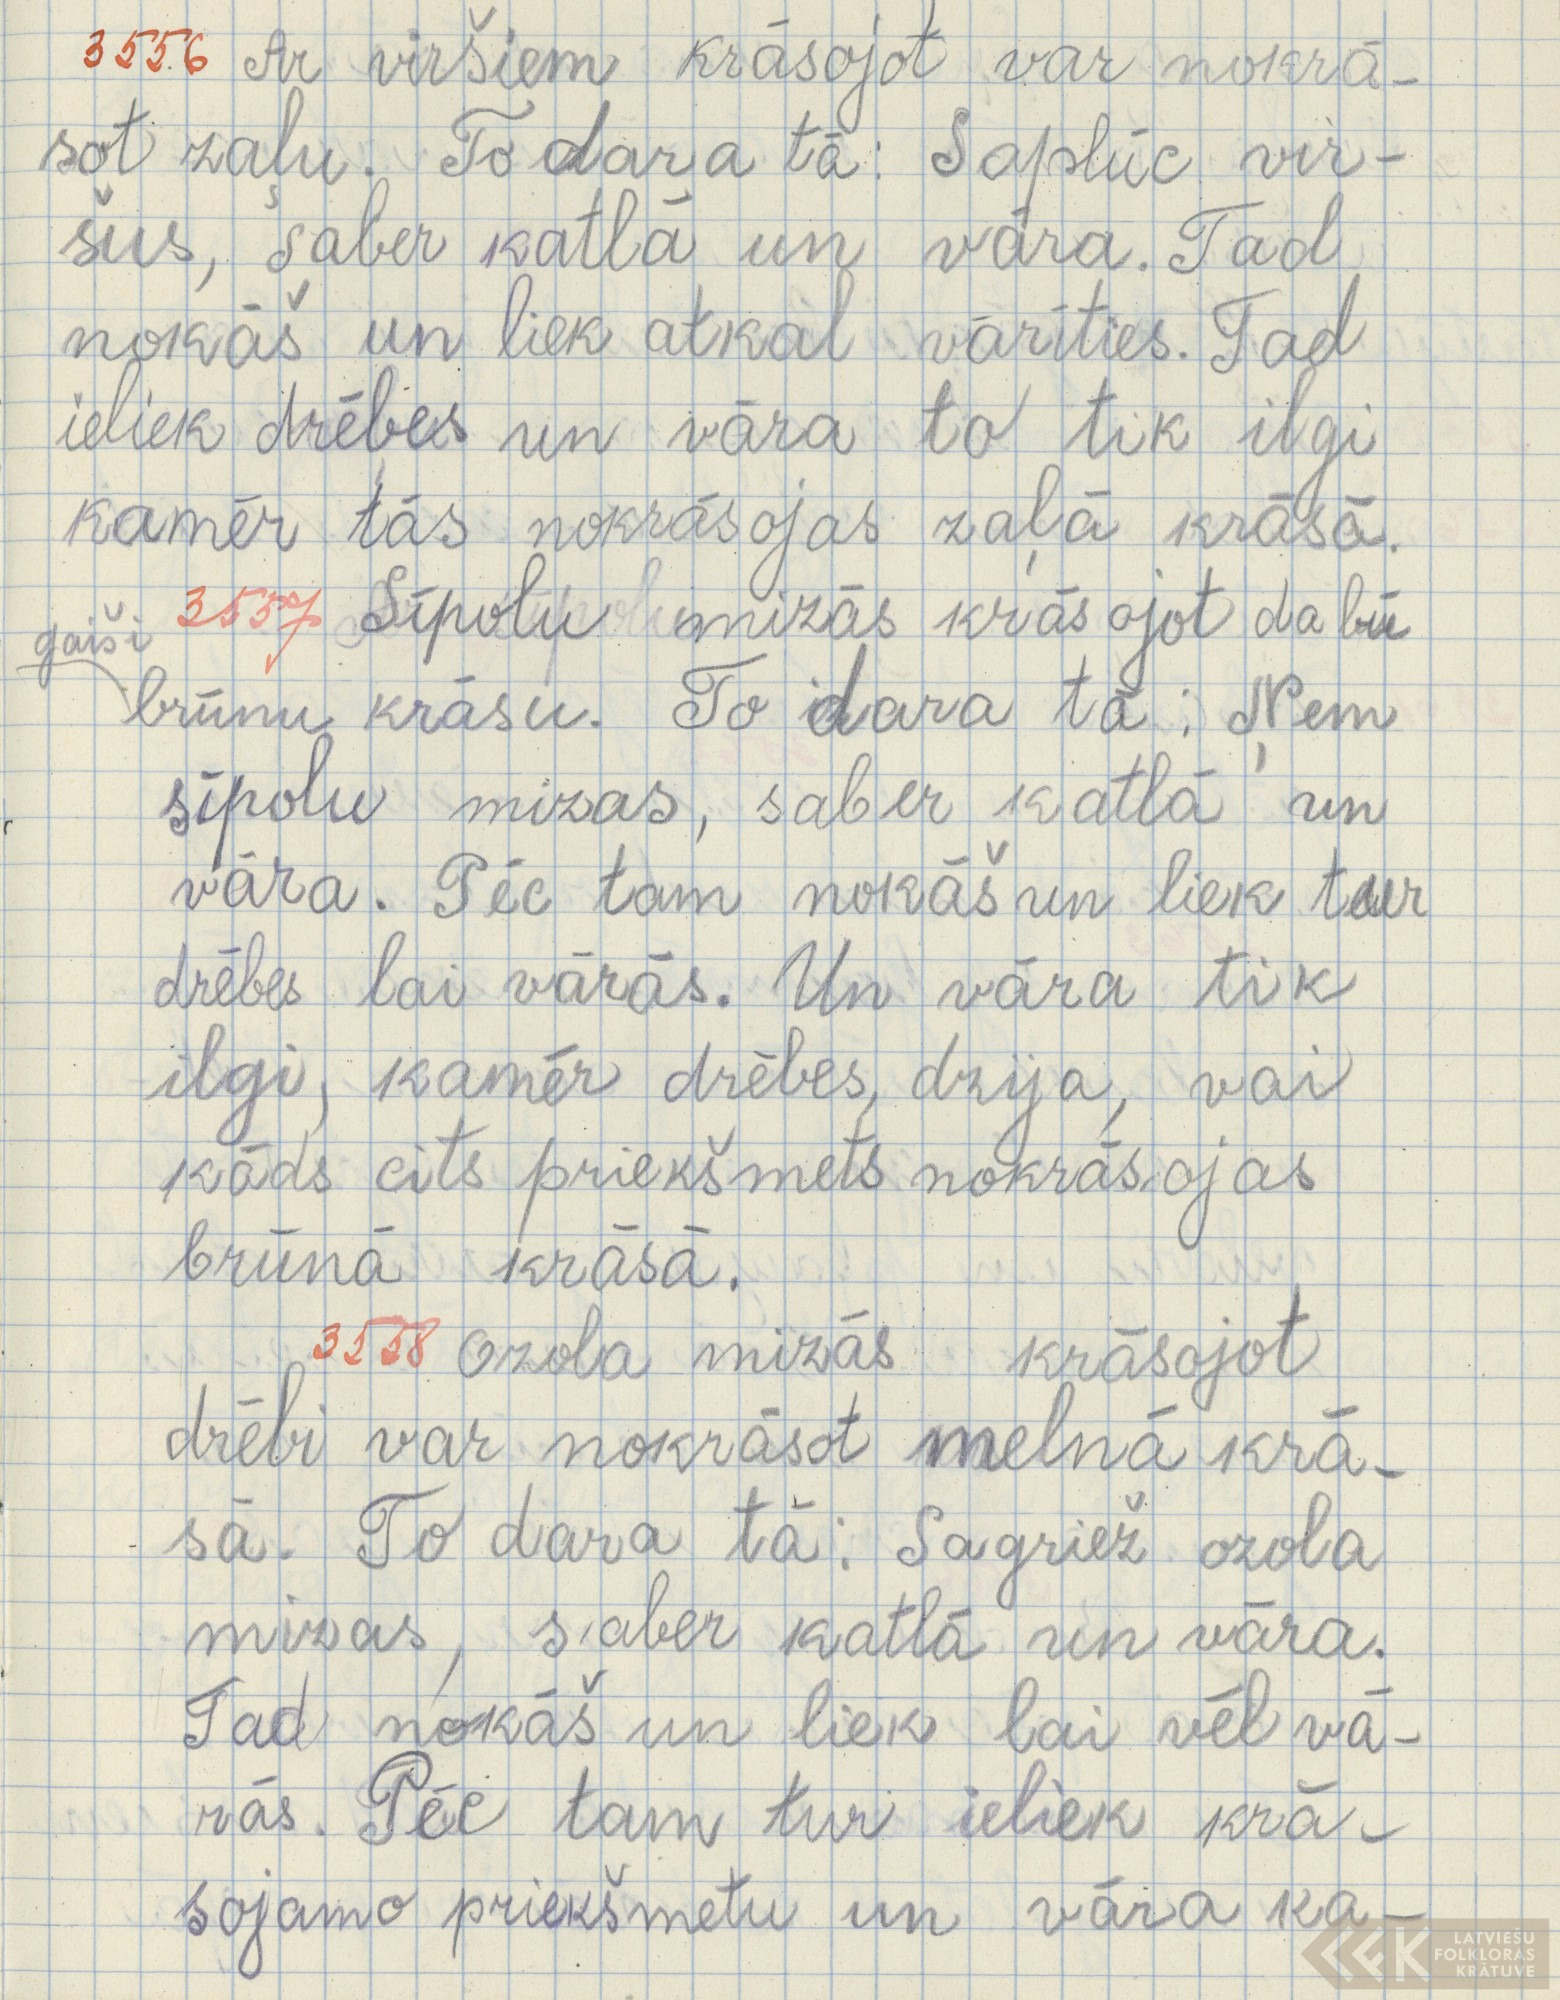 3556 Ar viršiem krāsojot var nokrā-
sot zaļu. To dara tā: Saplūc vir-
šus, saber katlā un vāra. Tad
nokāš un liek atkal vārīties. Tad
ieliek drēbes un vāra to tik ilgi
kamēr tās nokrāsojas zaļā krāsā.
3557 Sīpolu mizās krāsojot dabū
gaiši
brūnu krāsu. To dara tā: Ņem
sīpolu mizas, saber katlā un
vāra. Pēc tam nokāš un liek tur
drēbes lai vārās. Un vāra tik
ilgi, kamēr drēbes, dzija, vai
kāds cits priekšmets nokrāsojas
brūnā krāsā.
3558 Ozola mizās krāsojot
drēbi var nokrāsot melnā krā-
sā. To dara tā: Sagriež ozola
mizas, saber katlā un vāra.
Tad nokāš un liek lai vēl vā-
rās. Pēc tam tur ieliek krā-
sojamo priekšmetu un vāra ka-
LATVIEŠU
FOLKLORAS
KRĀTUVE